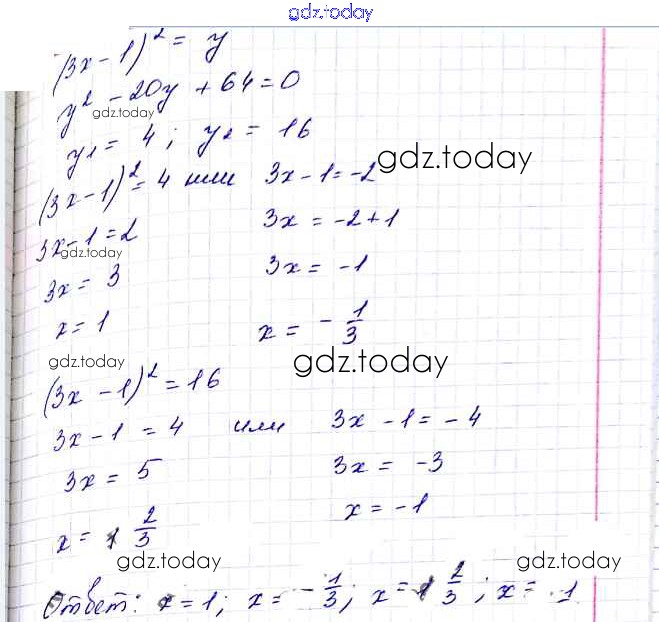 gdz.today
(3x-1)² = y
y² - 20y + 64 = 0
gdz.today
y₁ = 4; y₂ = 16
gdz.today
(3x-1)² = 4 или 3x-1=-2
3x-1=2 3x = -2+1
gdz.today
3x = 3 3x = -1
x = 1 x = - 1/3
gdz.today gdz.today
(3x-1)² = 16
3x-1 = 4 или 3x-1 = -4
3x = 5 3x = -3
x = 1 2/3 x = -1
gdz.today gdz.today
Ответ: x=1; x= -1/3; x=1 2/3; x= 1